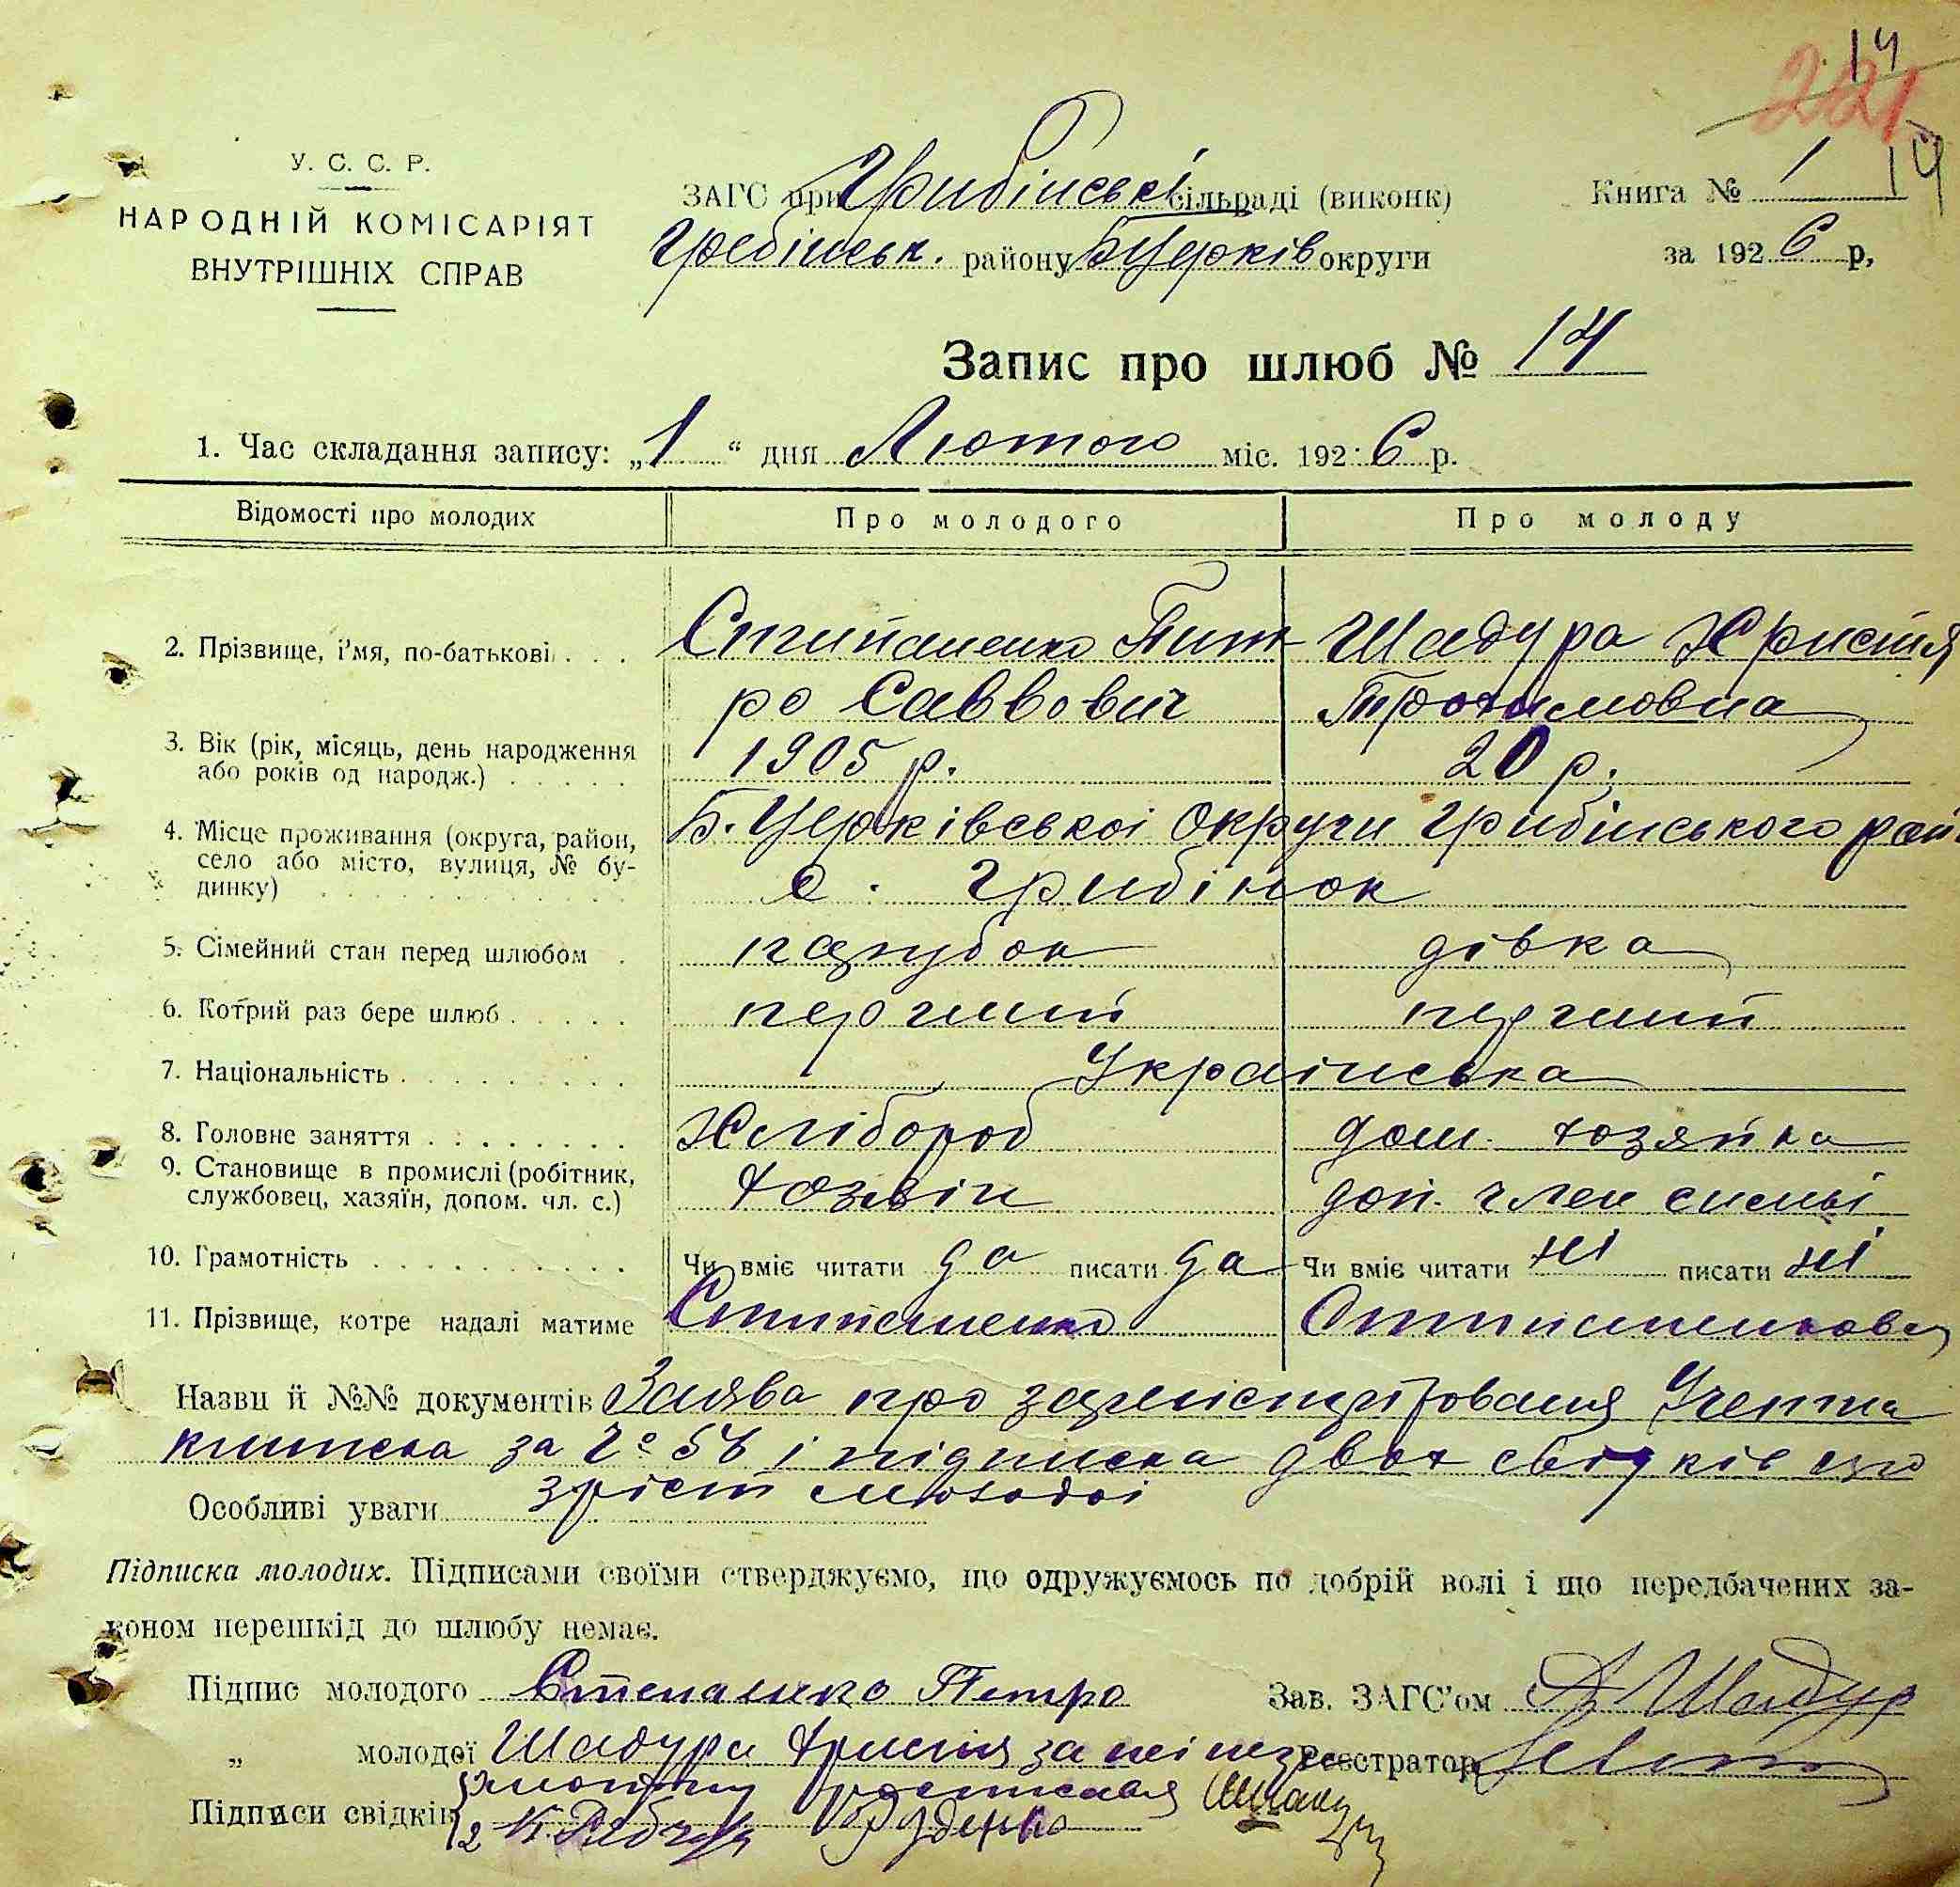 14
221
14
У. С. С. Р.
НАРОДНІЙ КОМІСАРІЯТ
ВНУТРІШНІХ СПРАВ
ЗАГС при Грибінській сільраді (виконк)
Гребінськ. району Б Церків округи
Книга № 1
за 1926 р,
Запис про шлюб № 14
1. Час складання запису: „1“ дня Лютого міс. 1926 р.
Відомості про молодих Про молодого Про молоду
2. Прізвище, і'мя, по-батькові . . . Стипаненко Пит- Шадура Христя
ро Саввович Трохимовна
3. Вік (рік, місяць, день народження
або років од народж.) 1905 р. 20 р.
4. Місце проживання (округа, район, Б. Церківської Округи Грибінського рай
село або місто, вулиця, № бу-
динку) с. Грибінок
5. Сімейний стан перед шлюбом парубок дівка
6. Котрий раз бере шлюб перший перший
7. Національність Українська
8. Головне заняття Хлібороб дом. хозяйка
9. Становище в промислі (робітник,
службовец, хазяїн, допом. чл. с.) хозяін доп. член симьї
10. Грамотність Чи вміє читати да писати да Чи вміє читати ні писати ні
11. Прізвище, котре надалі матиме Стипаненко Стипаненкова
Назви й №№ документів Заява про зареєстрірования Учетна
книжка за № 56 і підписка двох свідків про
зріст молодої
Особливі уваги
Підписка молодих. Підписами своїми стверджуємо, що одружуємось по добрій волі і що передбачених за-
коном перешкід до шлюбу немає.
Підпис молодого Степаненко Петро Зав. ЗАГС'ом Шадур
„ молодої Шадура Христя за неі Реєстратор
росписавя
Підписи свідків 2 Руденко